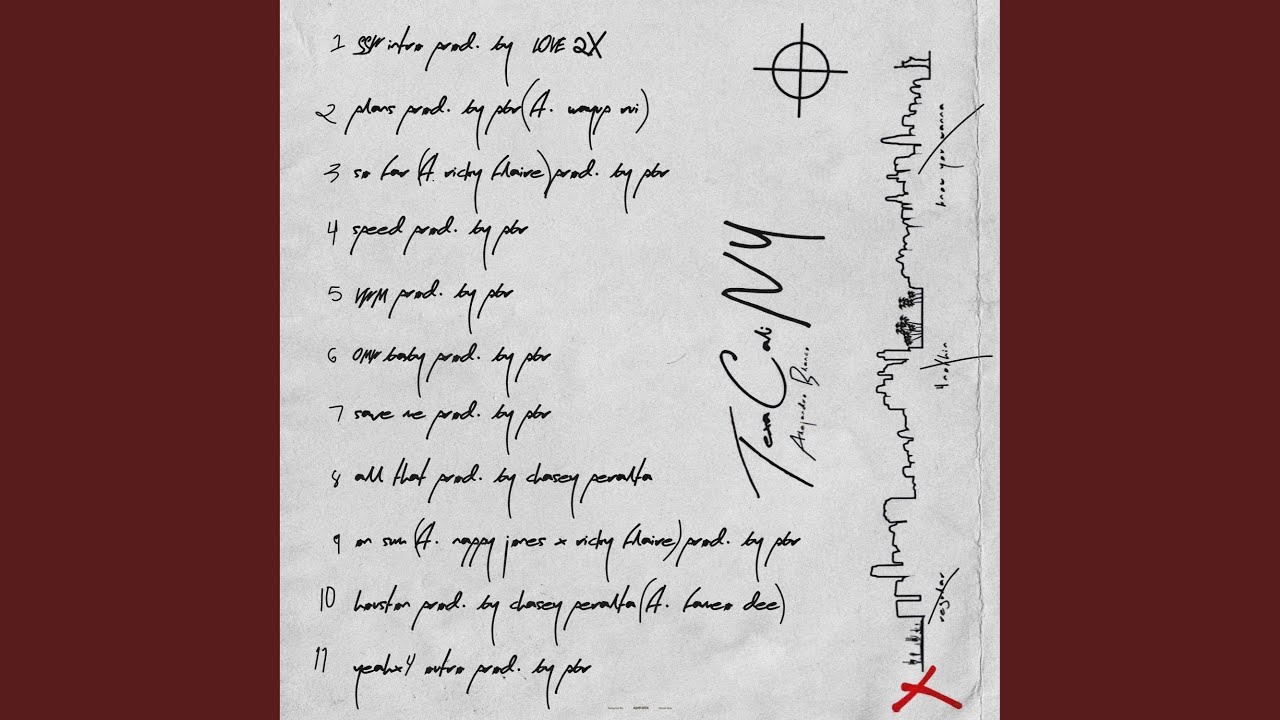 1 SSW intro prod. by LOVE 2X
2 plans prod. by pbr (ft. wayup rvi)
3 so far (ft. ricky flaire) prod. by pbr
4 speed prod. by pbr
5 prod. by pbr
6 OMW baby prod. by pbr
7 save me prod. by pbr
8 all that prod. by chasey peralta
9 on sum (ft. nappy jones x ricky flaire) prod. by pbr
10 houston prod. by chasey peralta (ft. fameo dee)
11 yeahx4 outro prod. by pbr
TexaCaliNY
Alejandro Blanco
know yor wanna
thnkhin
regular
X